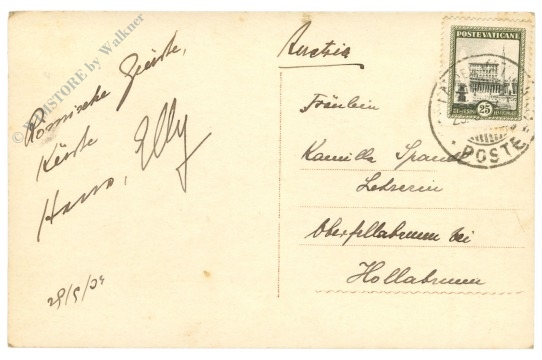 © FILMSTORE by Walkner
Römische Grüsse,
Küsse
Hans, Elly
28/5/34
Austria
Fräulein
Kamilla
Lehrerin
Oberfellabrunn bei
Hollabrunn
POSTE VATICANE
25
POSTE